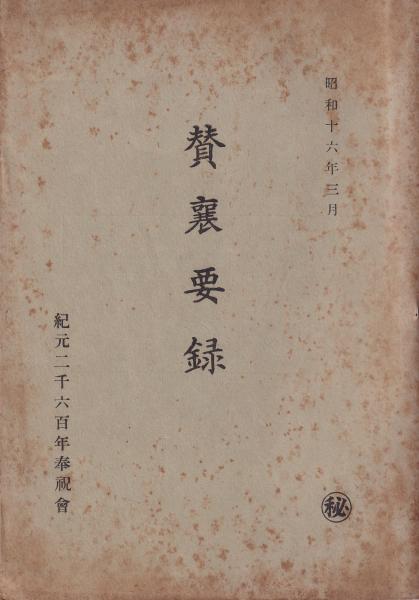 昭和十六年三月
賛襄要録
紀元二千六百年奉祝會
㊙